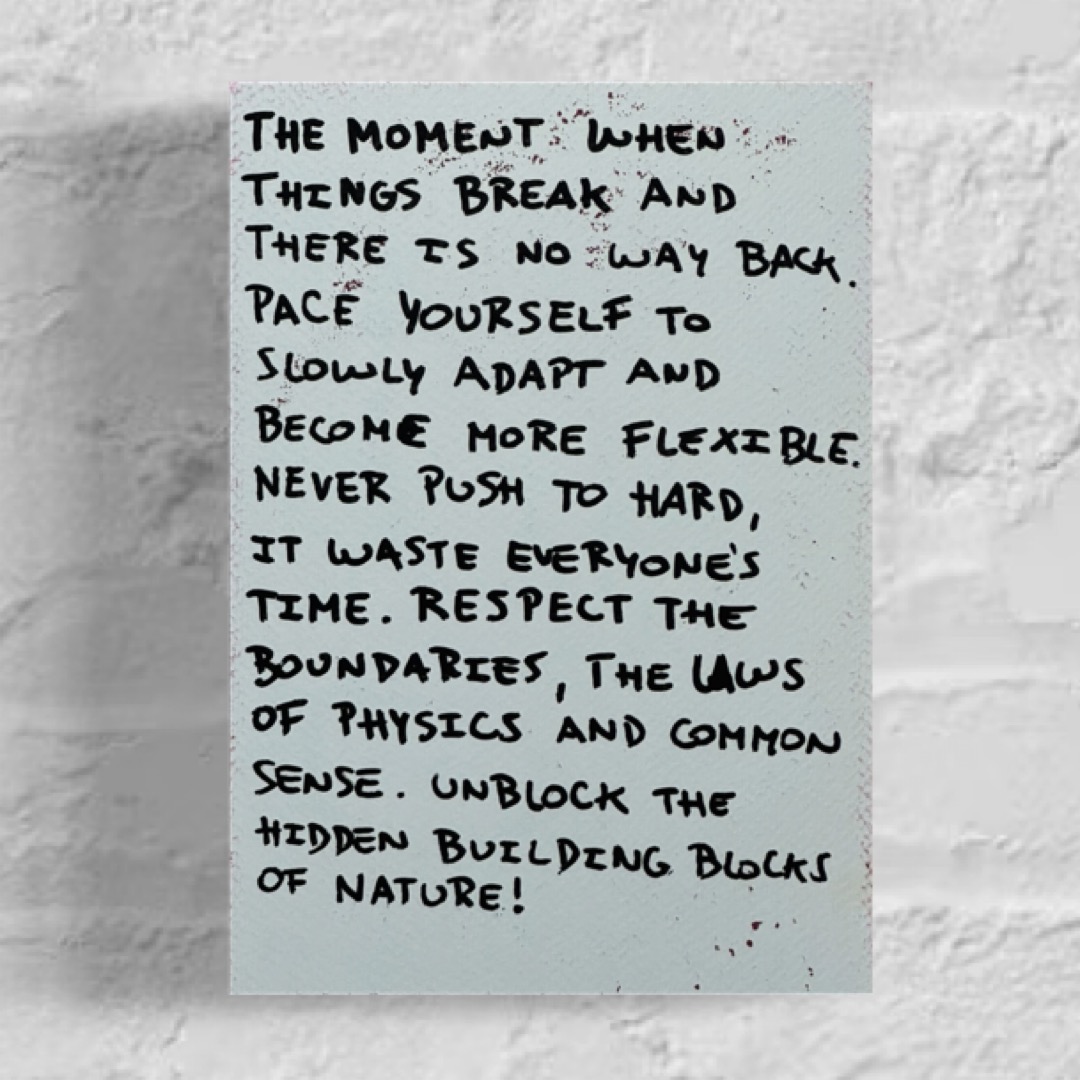 THE MOMENT WHEN
THINGS BREAK AND
THERE IS NO WAY BACK.
PACE YOURSELF TO
SLOWLY ADAPT AND
BECOME MORE FLEXIBLE.
NEVER PUSH TO HARD,
IT WASTE EVERYONE'S
TIME. RESPECT THE
BOUNDARIES, THE LAWS
OF PHYSICS AND COMMON
SENSE. UNBLOCK THE
HIDDEN BUILDING BLOCKS
OF NATURE!